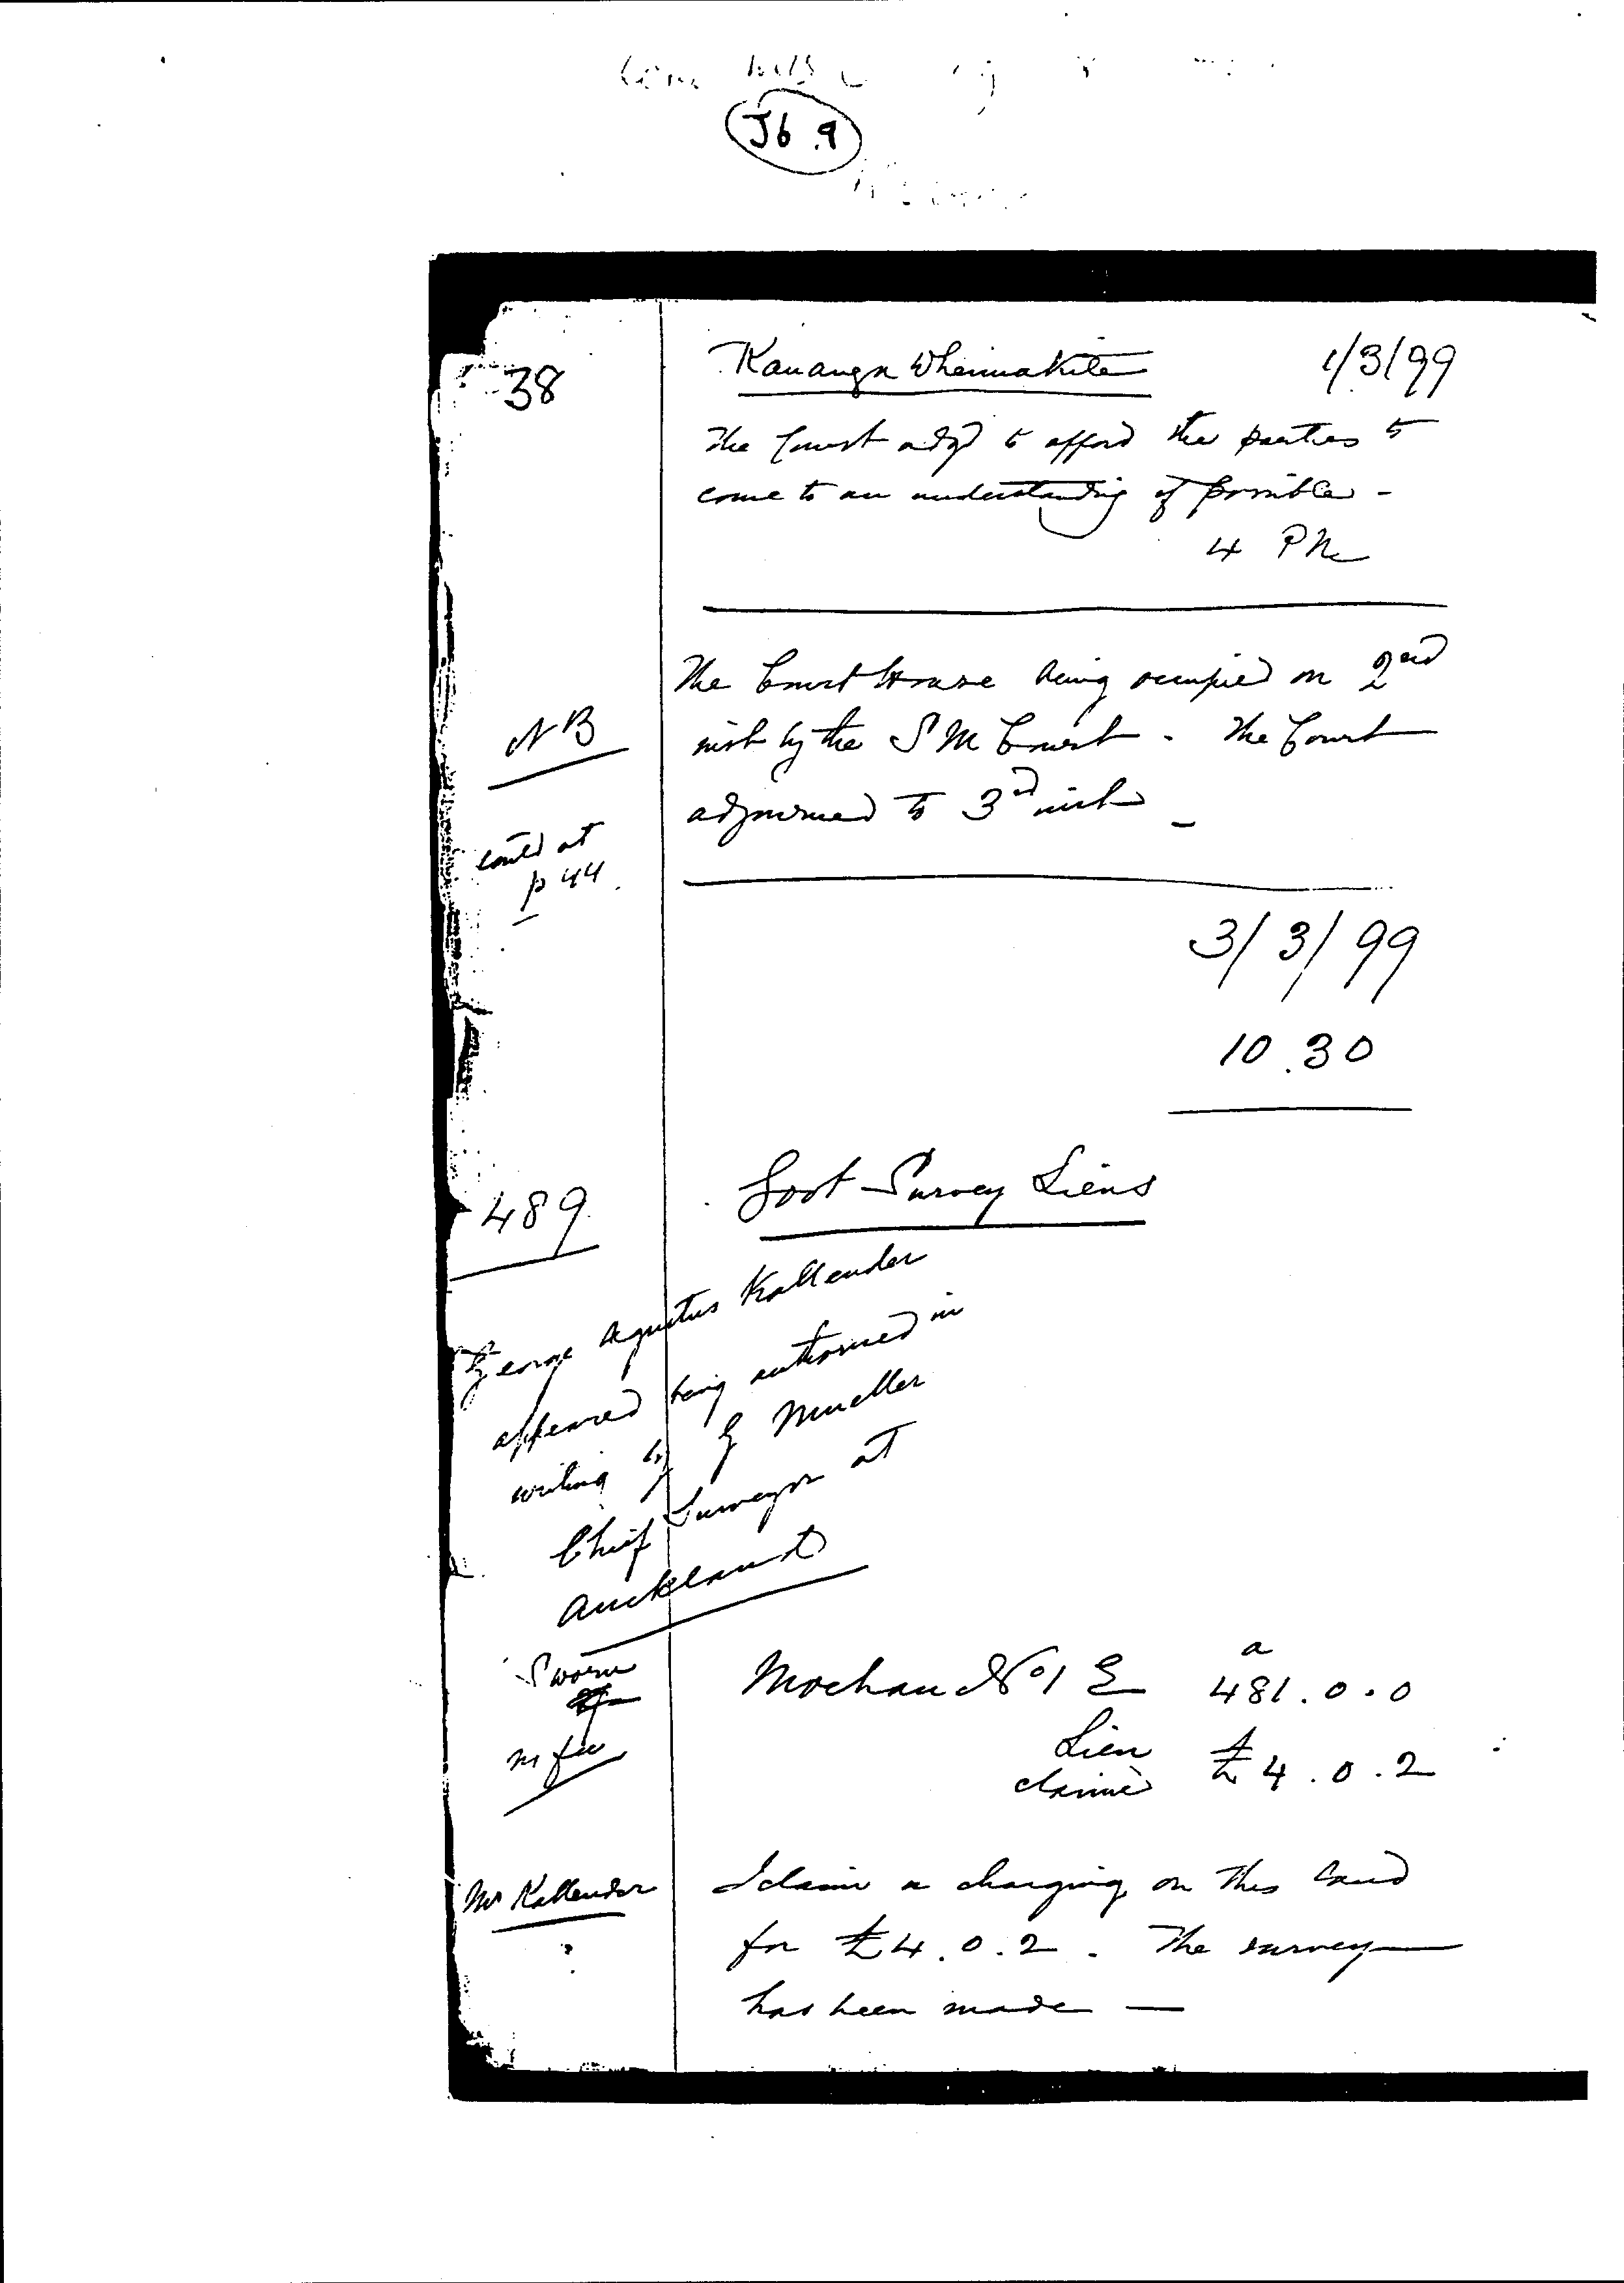 J6.9
38
Kauanga Whenuakite 1/3/99
The Court adjd to afford the parties to
come to an understanding if possible -
4 PM
The Court House being occupied on 2nd
NB
inst by the S M Court. The Court
adjourned to 3rd inst -
contd at
p 44.
3/3/99
10.30
489
Govt Survey Liens
George Agustus Kallender
appeared being authorised in
writing by G Mueller
Chief Surveyor at
Auckland
Sworn
Moehau No 1 E
a
481.0.0
Lien
claimed
£4.0.2
Mr Kallender
I claim a charging on this land
for £4.0.2. The survey
has been made —